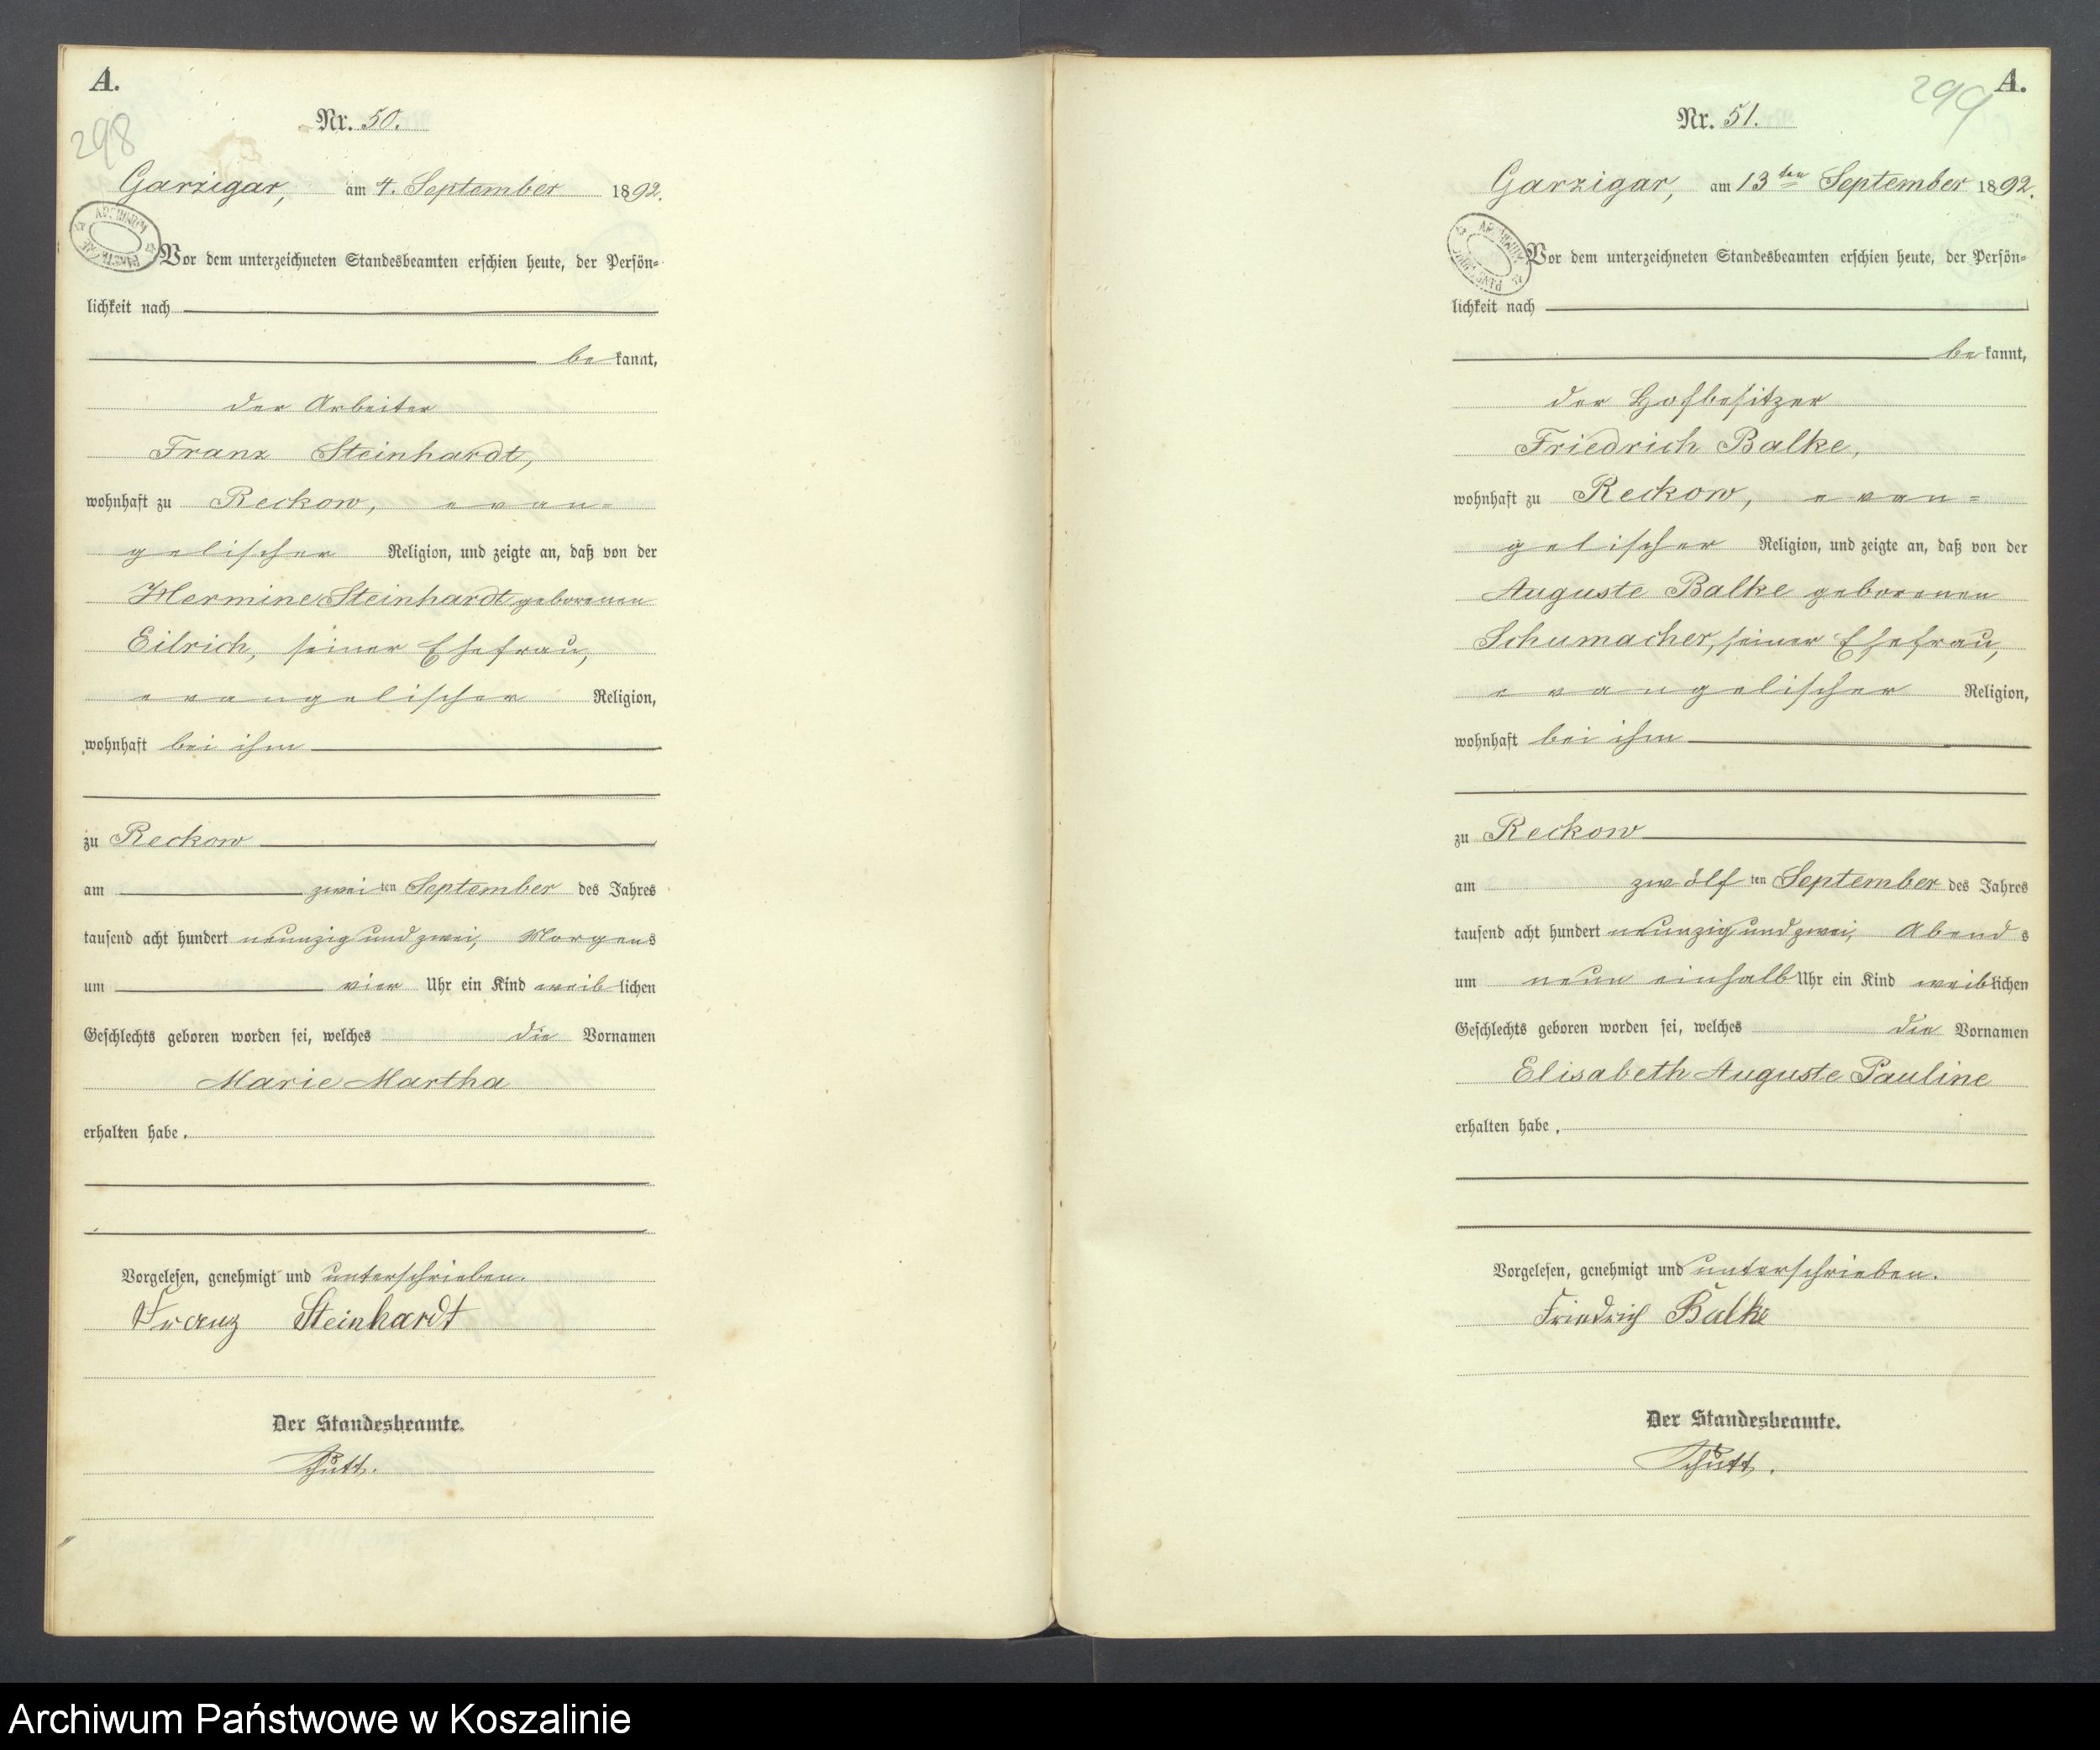 A.
298
Nr. 50.
Garzigar, am 4. September 1892.
ARCHIWUM PAŃSTWOWE
Vor dem unterzeichneten Standesbeamten erschien heute, der Persön-
lichkeit nach
be kannt,
der Arbeiter
Franz Steinhardt,
wohnhaft zu Reckow, evan-
gelischer Religion, und zeigte an, daß von der
Hermine Steinhardt geborenen
Eilrich, seiner Ehefrau,
evangelischer Religion,
wohnhaft bei ihm
zu Reckow
am zwei ten September des Jahres
tausend acht hundert neunzig und zwei, Morgens
um vier Uhr ein Kind weib lichen
Geschlechts geboren worden sei, welches die Vornamen
Marie Martha
erhalten habe.
Vorgelesen, genehmigt und unterschrieben.
Franz Steinhardt
Der Standesbeamte.
Schütt.
A.
299
Nr. 51.
Garzigar, am 13ten September 1892.
ARCHIWUM PAŃSTWOWE
Vor dem unterzeichneten Standesbeamten erschien heute, der Persön-
lichkeit nach
be kannt,
der Hofbesitzer
Friedrich Balke,
wohnhaft zu Reckow, evan-
gelischer Religion, und zeigte an, daß von der
Auguste Balke geborenen
Schumacher, seiner Ehefrau,
evangelischer Religion,
wohnhaft bei ihm
zu Reckow
am zwölf ten September des Jahres
tausend acht hundert neunzig und zwei, Abend s
um neun einhalb Uhr ein Kind weib lichen
Geschlechts geboren worden sei, welches die Vornamen
Elisabeth Auguste Pauline
erhalten habe.
Vorgelesen, genehmigt und unterschrieben.
Friedrich Balke
Der Standesbeamte.
Schütt.
Archiwum Państwowe w Koszalinie